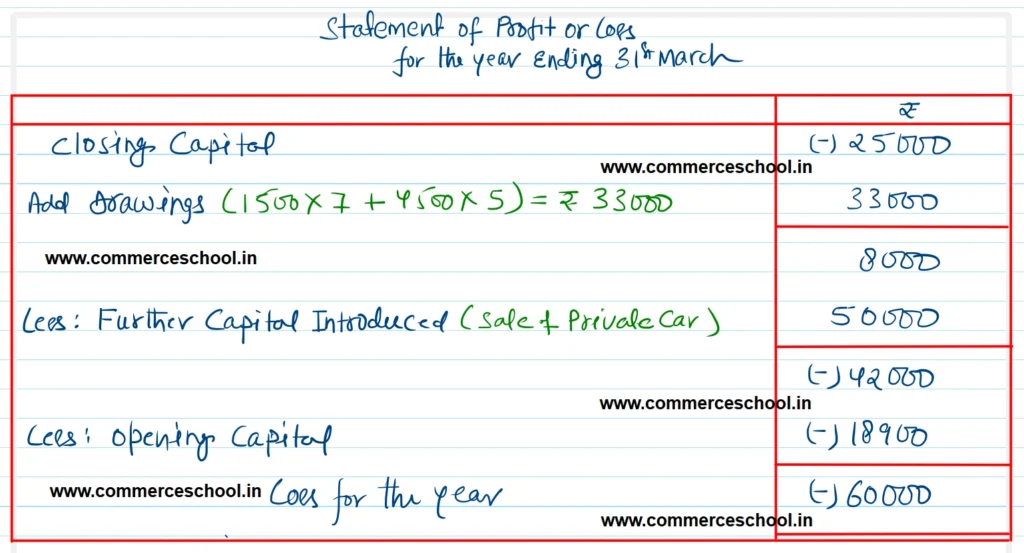 Statement of Profit or Loss
for the year Ending 31st March
₹
Closing Capital (-) 25000
www.commerceschool.in
Add Drawings (1500 x 7 + 4500 x 5) = ₹ 33000 33000
www.commerceschool.in 8000
Less: Further Capital Introduced (Sale of Private Car) 50000
(-) 42000
www.commerceschool.in
Less: Opening Capital (-) 18900
www.commerceschool.in Loss for the year (-) 60000
www.commerceschool.in